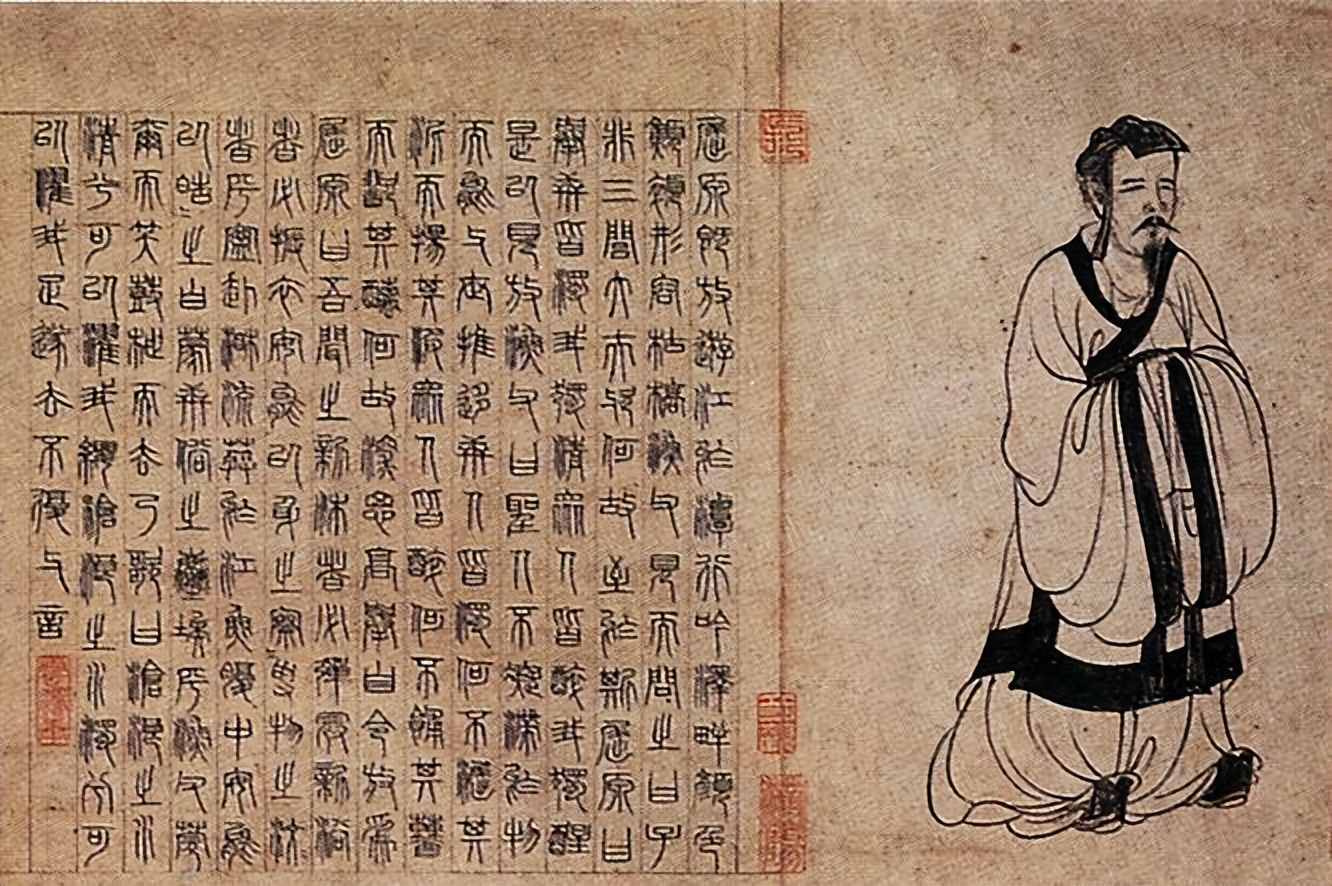 屈原既放遊江於潭行吟澤畔顏色
顦顇形容枯槁漁父見而問之曰子
非三閭大夫歟何故至於斯屈原曰
舉世皆濁我獨清衆人皆醉我獨醒
是以見放漁父曰聖人不凝滯於物
而能與世推移世人皆濁何不淈其
泥而揚其波衆人皆醉何不餔其糟
而歠其醨何故深思高舉自令放為
屈原曰吾聞之新沐者必彈冠新浴
者必振衣安能以身之察〻受物之汶〻
者乎寧赴湘流葬於江魚腹中安能
以皓〻之白蒙世俗之塵埃乎漁父莞
爾而笑鼓枻而去乃歌曰滄浪之水
清兮可以濯我纓滄浪之水濁兮可
以濯我足遂去不復與言